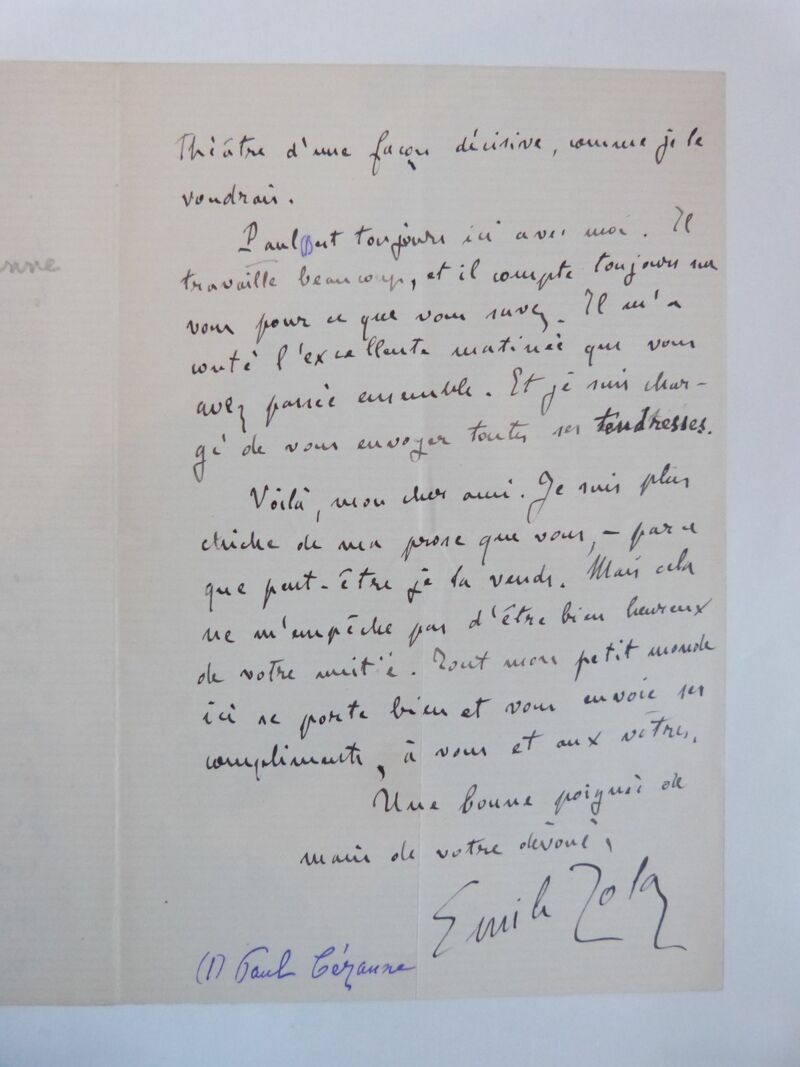 Théâtre d'une façon décisive, comme je le
voudrais.
Paul (1) est toujours ici avec moi. Il
travaille beaucoup, et il compte toujours sur
vous pour ce que vous savez. Il m'a
conté l'excellente matinée que vous
avez passée ensemble. Et je suis char-
gé de vous envoyer toutes ses tendresses.
Voilà, mon cher ami. Je suis plus
chiche de ma prose que vous, – parce
que peut-être je la vends. Mais cela
ne m'empêche pas d'être bien heureux
de votre amitié. Tout mon petit monde
ici se porte bien et vous envoie ses
compliments, à vous et aux vôtres.
Une bonne poignée de
main de votre dévoué,
Emile Zola
(1) Paul Cézanne
nne